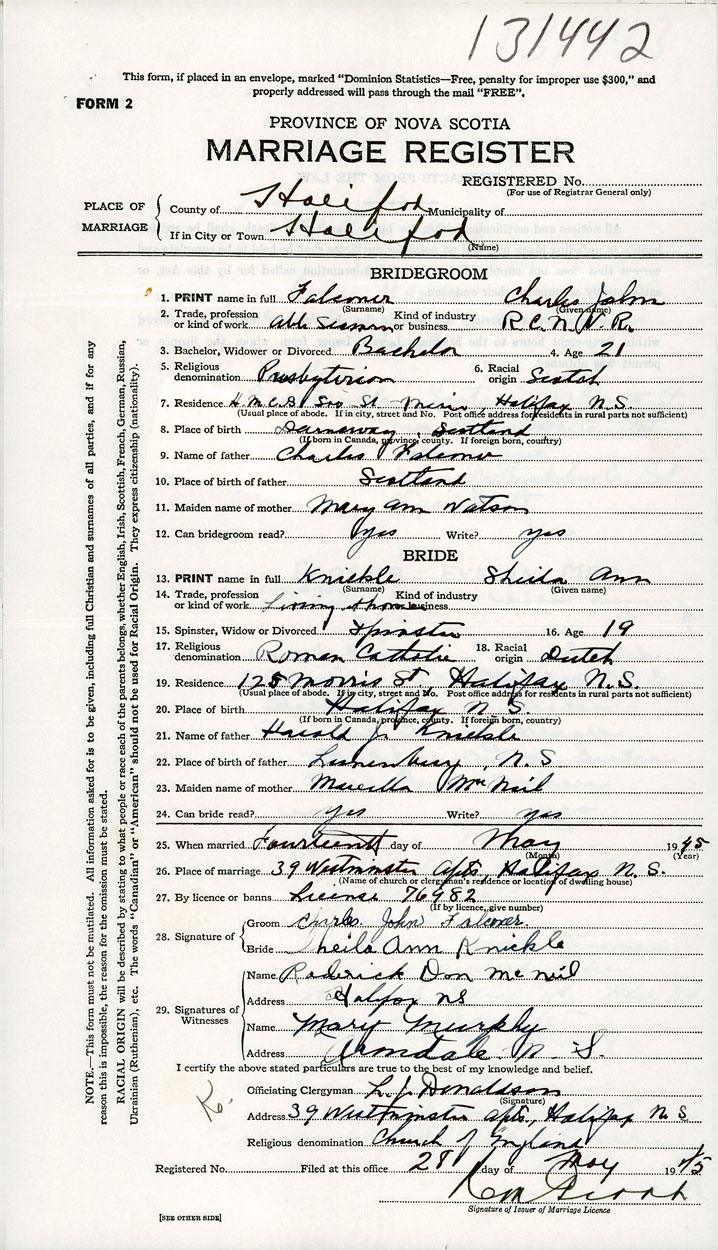 131442
This form, if placed in an envelope, marked "Dominion Statistics—Free, penalty for improper use $300," and
properly addressed will pass through the mail "FREE".
FORM 2
PROVINCE OF NOVA SCOTIA
MARRIAGE REGISTER
REGISTERED No.
(For use of Registrar General only)
PLACE OF MARRIAGE
County of Halifax Municipality of
If in City or Town Halifax
(Name)
BRIDEGROOM
1. PRINT name in full Falconer Charles John
(Surname) (Given name)
2. Trade, profession or kind of work Able Seaman Kind of industry or business R.C.N.V.R.
3. Bachelor, Widower or Divorced Bachelor 4. Age 21
5. Religious denomination Presbyterian 6. Racial origin Scotch
7. Residence H.M.C.S. Halifax N.S.
(Usual place of abode. If in city, street and No. Post office address for residents in rural parts not sufficient)
8. Place of birth Darnaway, Scotland
(If born in Canada, province, county. If foreign born, country)
9. Name of father Charles Falconer
10. Place of birth of father Scotland
11. Maiden name of mother Mary Ann Watson
12. Can bridegroom read? yes Write? yes
BRIDE
13. PRINT name in full Knickle Sheila Ann
(Surname) (Given name)
14. Trade, profession or kind of work Living at home Kind of industry or business
15. Spinster, Widow or Divorced Spinster 16. Age 19
17. Religious denomination Roman Catholic 18. Racial origin Dutch
19. Residence 125 Morris St Halifax N.S.
(Usual place of abode. If in city, street and No. Post office address for residents in rural parts not sufficient)
20. Place of birth Halifax N.S.
(If born in Canada, province, county. If foreign born, country)
21. Name of father Harold Jr. Knickle
22. Place of birth of father Lunenburg, N.S
23. Maiden name of mother Marcella McNeil
24. Can bride read? yes Write? yes
25. When married Fourteenth day of May 1945
(Month) (Year)
26. Place of marriage 39 Westminster Apts, Halifax N.S.
(Name of church or clergyman's residence or location of dwelling house)
27. By licence or banns License 76982
(If by licence, give number)
28. Signature of
Groom Charles John Falconer.
Bride Sheila Ann Knickle
29. Signatures of Witnesses
Name Roderick Don McNeil
Address Halifax NS
Name Mary Murphy
Address Armdale N.S.
I certify the above stated particulars are true to the best of my knowledge and belief.
Officiating Clergyman L. J. Donaldson
(Signature)
Address 39 Westminster Apts., Halifax N S
Religious denomination Church of England
Registered No. Filed at this office 28 day of May 1945
Signature of Issuer of Marriage Licence
[SEE OTHER SIDE]
NOTE.—This form must not be mutilated. All information asked for is to be given, including full Christian and surnames of all parties, and if for any
reason this is impossible, the reason for the omission must be stated.
RACIAL ORIGIN will be described by stating to what people or race each of the parents belongs, whether English, Irish, Scottish, French, German, Russian,
Ukrainian (Ruthenian), etc. The words "Canadian" or "American" should not be used for Racial Origin. They express citizenship (nationality).